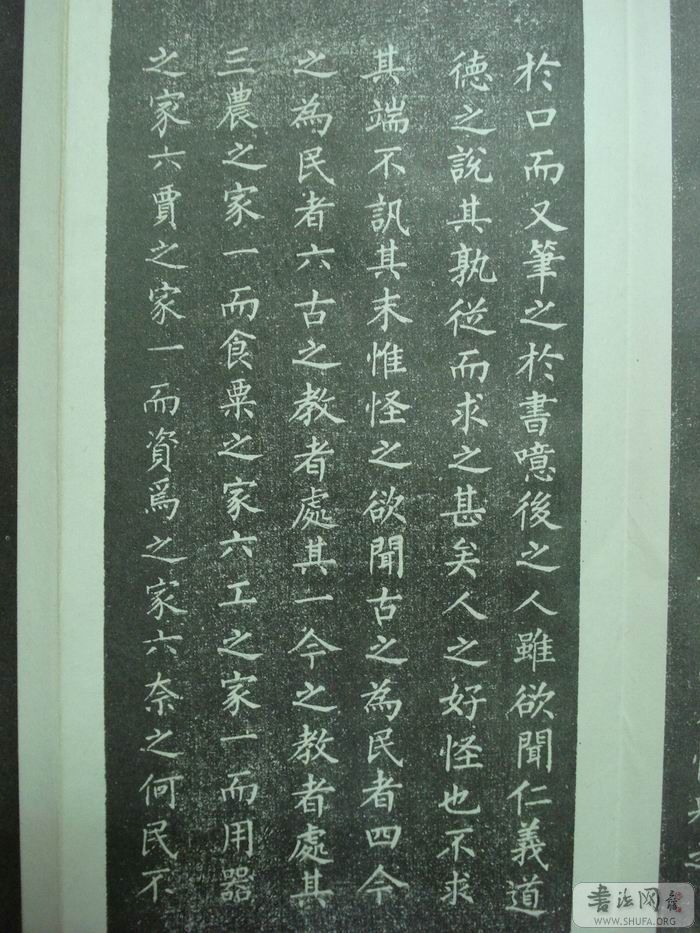 於口而又筆之於書噫後之人雖欲聞仁義道
德之說其孰從而求之甚矣人之好怪也不求
其端不訊其末惟怪之欲聞古之為民者四今
之為民者六古之教者處其一今之教者處其
三農之家一而食粟之家六工之家一而用器
之家六賈之家一而資焉之家六奈之何民不
书法网
WWW.SHUFA.ORG